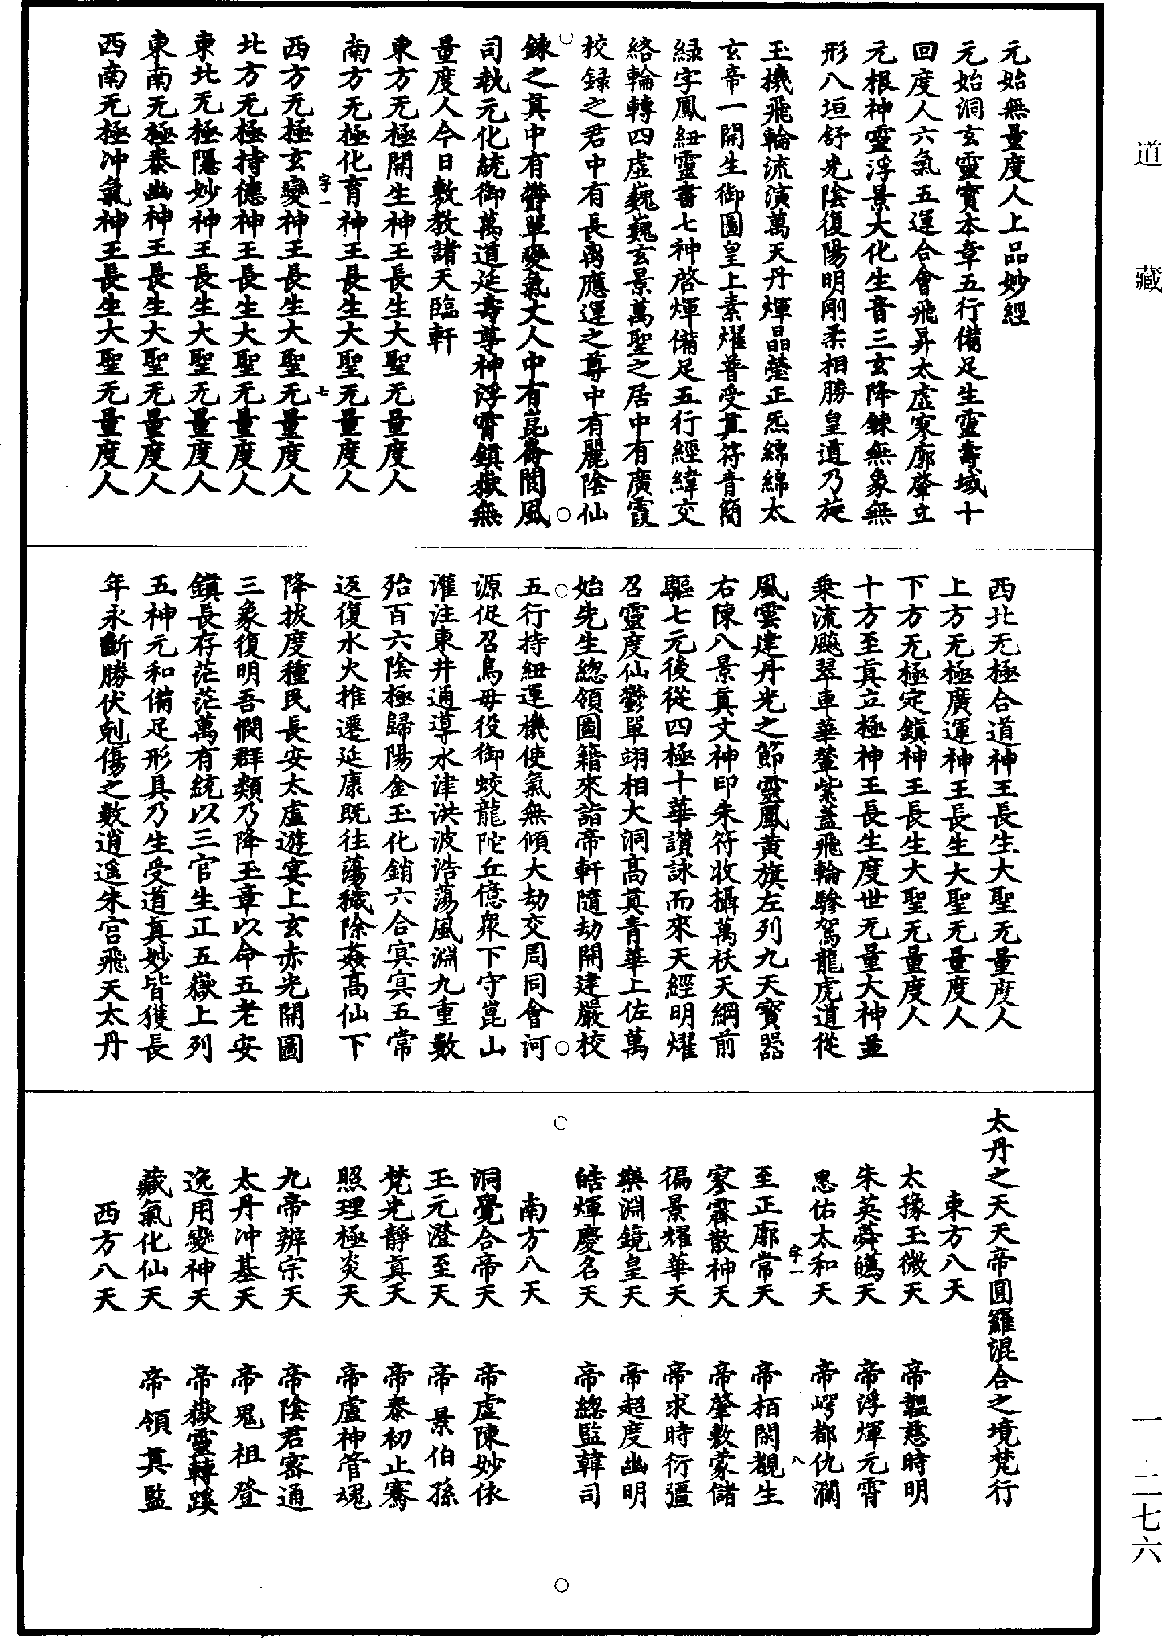 道藏
元始無量度人上品妙經
元始洞玄靈寶本章五行備足生靈壽域十
回度人六氣五運合會飛昇太虛寥廓肇立
元根神靈浮景大化生音三玄降鍊無象無
形八垣舒光陰復陽明剛柔相勝皇道乃施
玉機飛輪流演萬天丹煇晶瑩正炁綿綿太
玄帝一開生御圖皇上素燿普受真符青簡
綠字鳳紐靈書七神啓煇備足五行經緯交
絡輪轉四虛巍巍玄景萬聖之居中有廣霞
校錄之君中有長离應運之尊中有麗陰仙
鍊之真中有欝單變氣丈人中有崑崙閬風
司執元化統御萬道延壽尊神浮霄鎮嶽無
量度人今日敷教諸天臨軒
東方无極開生神王長生大聖无量度人
南方无極化育神王長生大聖无量度人
字一 七
西方无極玄變神王長生大聖无量度人
北方无極持德神王長生大聖无量度人
東北无極隱妙神王長生大聖无量度人
東南无極泰幽神王長生大聖无量度人
西南无極冲氣神王長生大聖无量度人
西北无極合道神王長生大聖无量度人
上方无極廣運神王長生大聖无量度人
下方无極定鎮神王長生大聖无量度人
十方至真立極神王長生度世无量大神並
乘流飈翠車華蓥紫蓋飛輪驂駕龍虎道從
風雲建丹光之節靈鳳黃旗左列九天寶器
右陳八景真文神印朱符收攝萬袄天綱前
驅七元後從四極十華讚詠而來天經明燿
召靈度仙鬱單翊相大洞高真青華上佐萬
始先生總領圖籍來詣帝軒隨劫開建嚴校
五行持紐運機使氣無傾大劫交周同會河
源促召鳥母役御蛟龍陀丘億衆下守崑山
灌注東井通導水津洪波浩蕩風淵九重數
殆百六陰極歸陽金玉化銷六合寘寘五常
返復水火推遷延康既往蕩穢除姦高仙下
降拔度種民長安太虛遊宴上玄赤光開圖
三象復明吾憫群類乃降玉章以命五老安
鎮長存茫茫萬有統以三官生正五嶽上列
五神元和備足形具乃生受道真妙皆獲長
年永斷勝伏剋傷之數逍遥朱宮飛天太丹
太丹之天天帝圓羅混合之境梵行
東方八天
太豫玉微天 帝韞慈時明
朱英蕣皫天 帝浮煇元霄
思佑太和天 帝崿都仇瀾
字一 八
至正廓常天 帝栢閑觀生
寥霽散神天 帝肇敷蒙儲
徧景燿華天 帝求時衍彊
樂淵鏡皇天 帝超度幽明
皓煇慶名天 帝總監韓司
南方八天
洞覺合帝天 帝虛陳妙依
玉元澄至天 帝景伯孫
梵光靜真天 帝泰初止騫
照理極炎天 帝盧神管魂
九帝辨宗天 帝陰君審通
太丹冲基天 帝鬼祖登
逸用變神天 帝嶽靈轉蹊
藏氣化仙天 帝領真監
西方八天
一·二七六